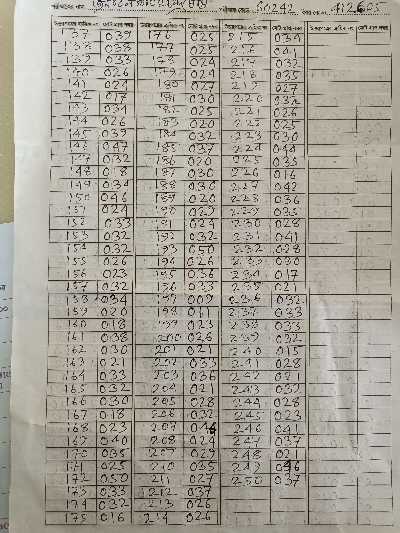 60242 412605
137 039 176 025 215 039
138 038 177 025 216 041
139 033 178 024 217 032
140 026 179 024 218 035
141 024 180 027 219 027
142 017 181 030 220 032
143 034 182 025 221 026
144 026 183 020 222 025
145 039 184 032 223 030
146 047 185 037 224 044
147 032 186 020 225 035
148 018 187 030 226 016
149 034 188 030 227 042
150 046 189 020 228 036
151 024 190 029 229 035
152 033 191 024 230 028
153 032 192 032 231 041
154 032 193 050 232 028
155 026 194 026 233 030
156 023 195 036 234 017
157 032 196 033 235 021
158 034 197 009 236 032
159 020 198 011 237 033
160 018 199 023 238 033
161 038 200 026 239 032
162 030 201 021 240 015
163 021 202 033 241 028
164 033 203 036 242 021
165 032 204 021 243 039
166 030 205 028 244 028
167 018 206 032 245 023
168 023 207 246 041
169 040 208 024 247 037
170 035 209 029 248 021
171 025 210 035 249 046
172 050 211 027 250 037
173 033 212 037
174 032 213 026
175 016 214 026